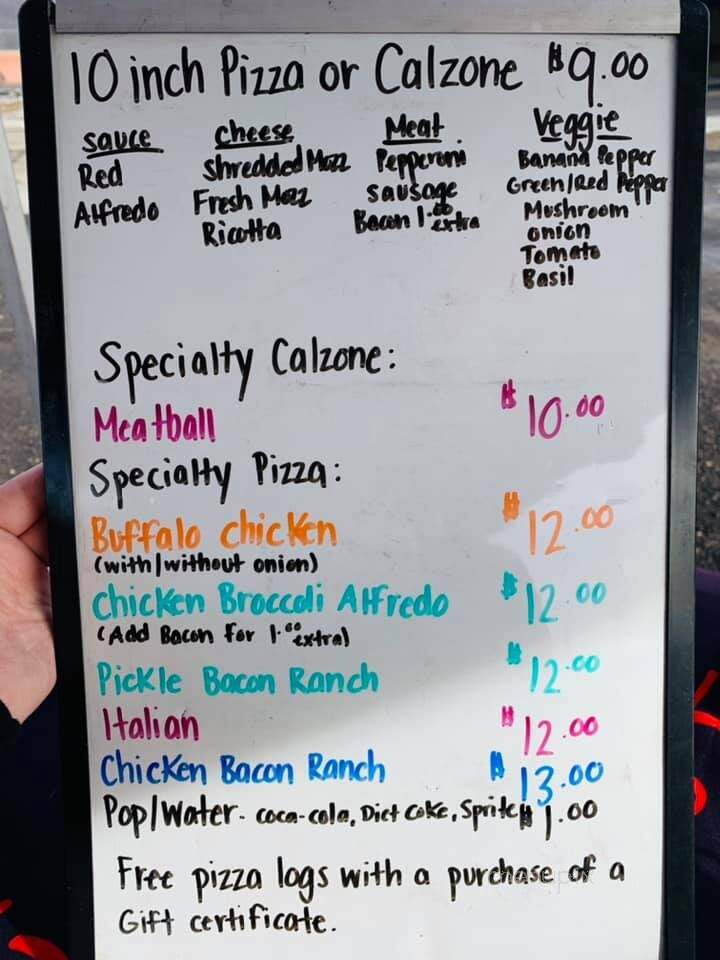 10 inch Pizza or Calzone $9.00
sauce
Red
Alfredo
cheese
Shredded Mozz
Fresh Mozz
Ricotta
Meat
Pepperoni
sausage
Bacon 1.00 extra
Veggie
Banana Pepper
Green/Red Pepper
Mushroom
onion
Tomato
Basil
Specialty Calzone:
Meatball $10.00
Specialty Pizza:
Buffalo chicken $12.00
(with/without onion)
Chicken Broccoli Alfredo $12.00
(Add Bacon for 1.00 extra)
Pickle Bacon Ranch $12.00
Italian $12.00
Chicken Bacon Ranch $13.00
Pop/Water - coca-cola, Diet Coke, Sprite $1.00
Free pizza logs with a purchase of a
Gift certificate.